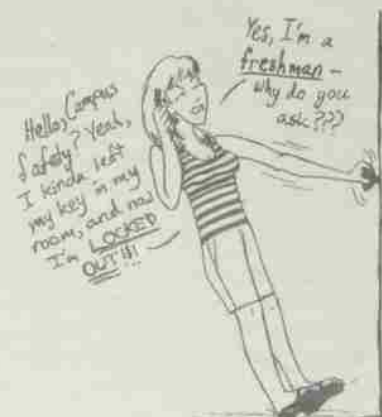 Hello, Campus
Safety? Yeah,
I kinda left
my key in my
room, and now
I'm LOCKED
OUT!!!
Yes, I'm a
freshman -
why do you
ask???